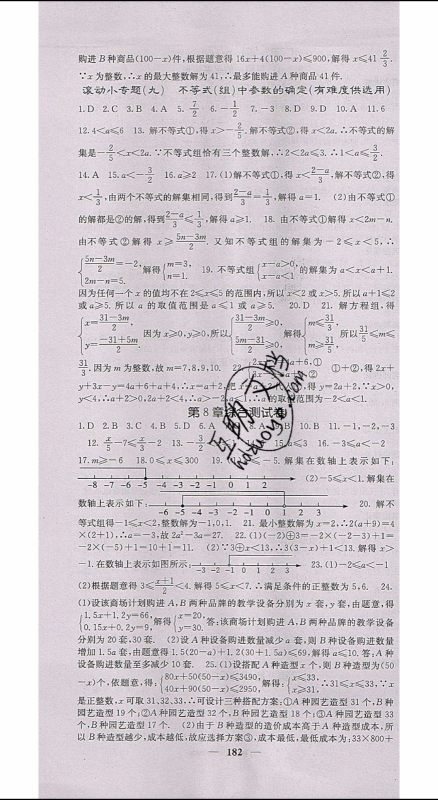 购进 B 种商品(100-x)件,根据题意得 16x+4(100-x)≤900,解得 x≤41 2/3.
∵x 为整数,∴x 的最大整数解为 41,∴最多能购进 A 种商品 41 件.
滚动小专题(九) 不等式(组)中参数的确定(有难度供选用)
1.D 2.C 3.B 4.A 5. 7/2 6.-1/2 7.-3 8.D 9.D 10.A 11.6
12.4<a≤6 13. 解不等式①,得 x>-2/5. 解不等式②,得 x<2a.∴不等式的解
集是-2/5<x<2a.∵不等式组恰有三个整数解,∴2<2a≤3.∴1<a≤3/2.
14.A 15.a<-3/2 16.a≥2 17.(1)解不等式①,得 x<(2-a)/3,解不等式②,得
x<1/3,由两个不等式的解集相同,得到(2-a)/3=1/3,解得 a=1. (2)由不等式①
的解都是②的解,得到(2-a)/3≤1/3,解得 a≥1. 18. 由不等式①解得 x<2m-n.
由不等式②解得 x≥(5n-3m)/2. 又知不等式组的解集为 -2≤x<5,∴
{(5n-3m)/2=-2, 2m-n=5. 解得{m=3, n=1. 19. 不等式组{x-a>0, x-a<1 的解集为 a<x<a+1.
因为任何一个 x 的值均不在 2≤x≤5 的范围内,所以 x<2 或 x>5. 所以 a+1≤2
或 a≥5. 所以 a 的取值范围是 a≤1 或 a≥5. 20.D 21. 解方程组,得
{x=(31-3m)/2, y=(-31+5m)/2. 因为 x≥0,y≥0,所以{(31-3m)/2≥0, (5m-31)/2≥0, 解得{m≤31/3, m≥31/5, 所以31/5≤m≤
31/3. 因为 m 为整数,故 m=7,8,9,10. 22. +a+6,① ② ①+②,得 2x+
y+3x-y=4a+6+a+4,∴x=a+2,把 得 y=2a+2.∵x>0,
y<4,∴a+2>0,2a+2<4,∴a>-2, ∴a 的取值范围为-2<a<1.
第 8 章综合测试卷
1.D 2.B 3.C 4.B 5.C 6. A 10.B 11.-1,-2,-3
12. x/5-7≤x/3-2 13.- 15.a≤3 16.-3≤a<-2
17.m≥-6 18.0≤x≤300 19. ≤-5. 解集在数轴上表示如下:
-8 -7 -6 -5 -4 -3 -2 -1 0 1 (2)-5≤x<1.解集在
数轴上表示如下: -6 -5 -4 -3 -2 -1 0 1 2 3 20. 解不
等式组得-1≤x<2,整数解为-1,0,1. 21. 最小整数解为 x=2,∴2(a+9)=4
×(2+1),∴a=-3,故 2a²-3a=27. 22.(1)(-2)⊕3=-2×(-2-3)+1=
-2×(-5)+1=10+1=11. (2)∵3⊕x<13,∴3(3-x)+1<13.解得 x>
-1.在数轴上表示如图所示: -3 -2 -1 0 1 2 3 23.(1)-2≤a<-1
(2)根据题意得 3≤(x+1)/2<4.解得 5≤x<7,∴满足条件的正整数为 5,6. 24.
(1)设该商场计划购进 A,B 两种品牌的教学设备分别为 x 套,y 套,由题意,得
{1.5x+1.2y=66, 0.15x+0.2y=9, 解得{x=20, y=30. 答:该商场计划购进 A,B 两种品牌的教学设备
分别为 20 套,30 套. (2)设 A 种设备购进数量减少 a 套,则 B 种设备购进数量
增加 1.5a 套,由题意得 1.5(20-a)+1.2(30+1.5a)≤69,解得 a≤10. 答:A 种
设备购进数量至多减少 10 套. 25.(1)设搭配 A 种造型 x 个,则 B 种造型为(50
-x)个,依题意,得:{80x+50(50-x)≤3490, 40x+90(50-x)≤2950, 解得:{x≤33, x≥31,∴31≤x≤33,∵x
是正整数,x 可取 31,32,33.∴可设计三种搭配方案:①A 种园艺造型 31 个,B 种
园艺造型 19 个;②A 种园艺造型 32 个,B 种园艺造型 18 个;③A 种园艺造型 33
个,B 种园艺造型 17 个. (2)由于 B 种造型的造价成本高于 A 种造型成本,所
以 B 种造型越少,成本越低,故应选择方案③,成本最低,最低成本为:33×800+
182